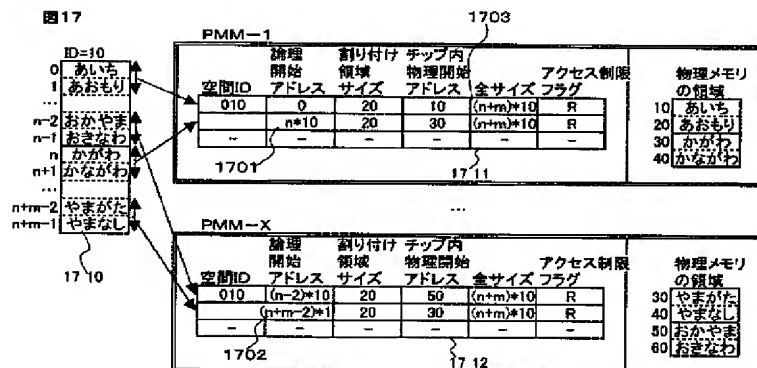 図17
PMM-1
1703
ID=10
0 あいち
1 あおもり
...
n-2 おかやま
n-1 おきなわ
n かがわ
n+1 かながわ
...
n+m-2 やまがた
n+m-1 やまなし
17 10
空間ID 論理開始アドレス 割り付け領域サイズ チップ内物理開始アドレス 全サイズ アクセス制限フラグ
010 0 20 10 (n+m)*10 R
n*10 20 30 (n+m)*10 R
- - - - - -
1701
17 11
物理メモリの領域
10 あいち
20 あおもり
30 かがわ
40 かながわ
...
PMM-X
空間ID 論理開始アドレス 割り付け領域サイズ チップ内物理開始アドレス 全サイズ アクセス制限フラグ
010 (n-2)*10 20 50 (n+m)*10 R
(n+m-2)*1 20 30 (n+m)*10 R
- - - - - -
1702
17 12
物理メモリの領域
30 やまがた
40 やまなし
50 おかやま
60 おきなわ